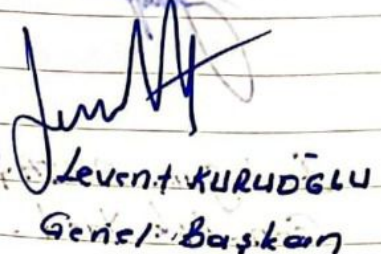 Levent KURUDĞLU
Genel Başkan